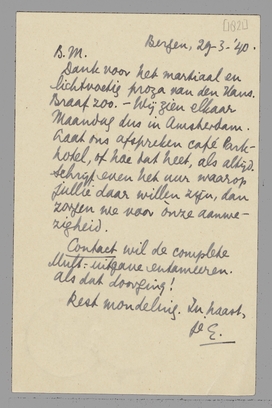 [1821]
Bergen, 29-3-'40.
B.M.
Dank voor het martiaal en
lichtvoetig proza van den Hans.
Braaf zoo. - Wij zien elkaar
Maandag dus in Amsterdam.
Laat ons afspreken café Park-
hotel, of hoe dat heet, als altijd.
Schrijf even het uur waarop
jullie daar willen zijn, dan
zorgen we voor onze aanwe-
zigheid.
Contact wil de complete
Mult.-uitgave entameeren.
Als dat doorging!
Rest mondeling. In haast,
je E.